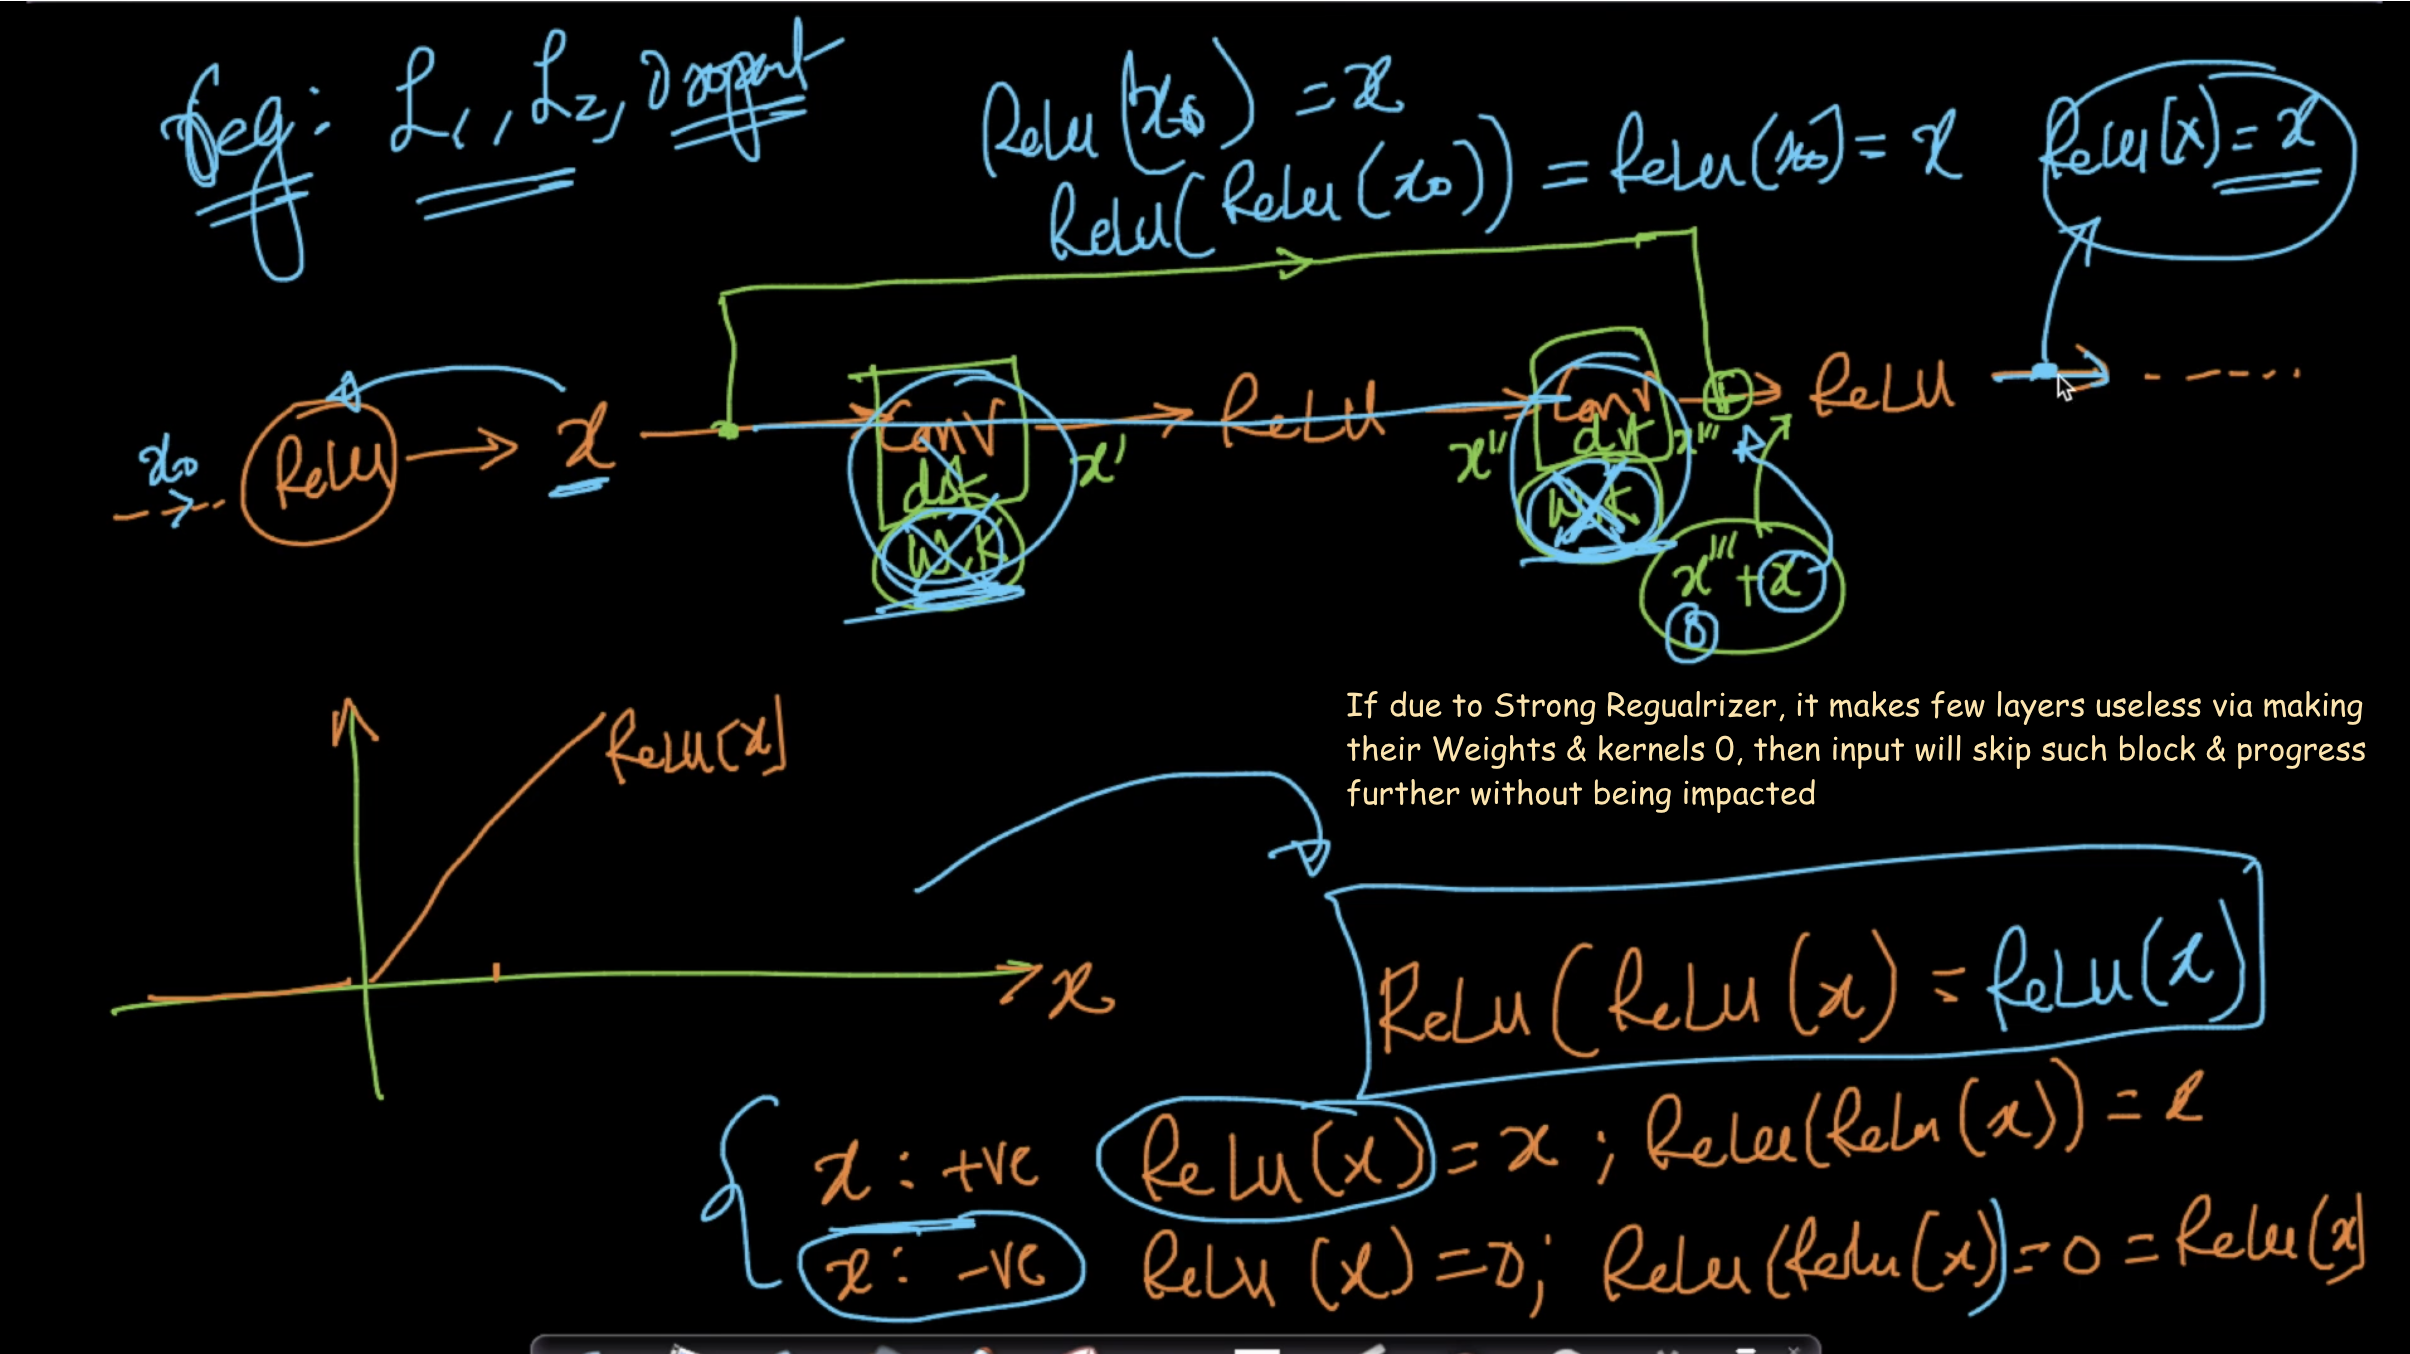 Reg: L1, L2, Dropout
ReLU(x0) = x
ReLU(ReLU(x0)) = ReLU(x0) = x
ReLU(x) = x
x0
ReLU
x
Conv
dst
W,K
x'
ReLU
x''
Conv
W,K
x'''
+
ReLU
x''' + x
0
ReLU(x)
x
If due to Strong Regualrizer, it makes few layers useless via making
their Weights & kernels 0, then input will skip such block & progress
further without being impacted
ReLU(ReLU(x) = ReLU(x)
x : +ve ReLU(x) = x ; ReLU(ReLU(x)) = x
x : -ve ReLU(x) = 0; ReLU(ReLU(x)) = 0 = ReLU(x)